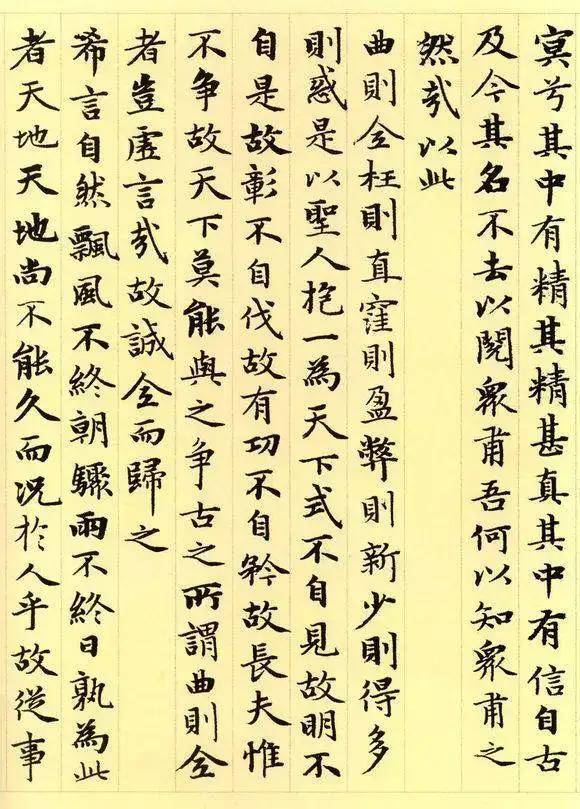 冥兮其中有精其精甚真其中有信自古
及今其名不去以閱眾甫吾何以知眾甫之
然哉以此
曲則全枉則直窪則盈弊則新少則得多
則惑是以聖人抱一為天下式不自見故明不
自是故彰不自伐故有功不自矜故長夫惟
不争故天下莫能與之争古之所謂曲則全
者豈虛言哉故誠全而歸之
希言自然飄風不終朝驟雨不終日孰為此
者天地天地尚不能久而况於人乎故從事